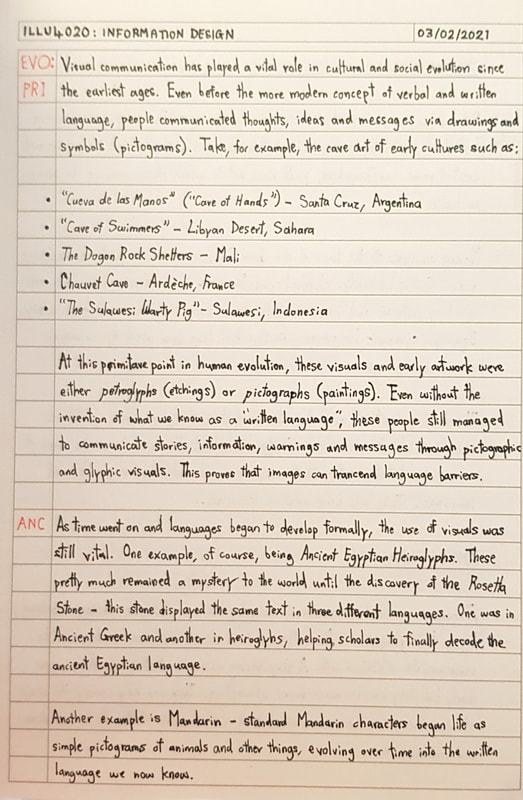 ILLU4020: INFORMATION DESIGN 03/02/2021
EVO: Visual communication has played a vital role in cultural and social evolution since
PRI the earliest ages. Even before the more modern concept of verbal and written
language, people communicated thoughts, ideas and messages via drawings and
symbols (pictograms). Take, for example, the cave art of early cultures such as:
• "Cueva de las Manos" ("Cave of Hands") – Santa Cruz, Argentina
• "Cave of Swimmers" – Libyan Desert, Sahara
• The Dogon Rock Shelters – Mali
• Chauvet Cave – Ardèche, France
• "The Sulawesi Warty Pig" – Sulawesi, Indonesia
At this primitave point in human evolution, these visuals and early artwork were
either petroglyphs (etchings) or pictographs (paintings). Even without the
invention of what we know as a "written language", these people still managed
to communicate stories, information, warnings and messages through pictographic
and glyphic visuals. This proves that images can trancend language barriers.
ANC As time went on and languages began to develop formally, the use of visuals was
still vital. One example, of course, being Ancient Egyptian Heiroglyphs. These
pretty much remained a mystery to the world until the discovery of the Rosetta
Stone – this stone displayed the same text in three different languages. One was in
Ancient Greek and another in heiroglyhs, helping scholars to finally decode the
ancient Egyptian language.
Another example is Mandarin – standard Mandarin characters began life as
simple pictograms of animals and other things, evolving over time into the written
language we now know.